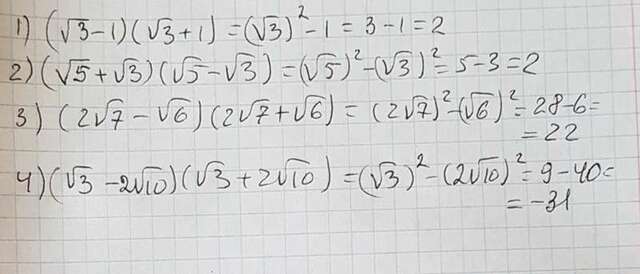 1) (√3-1)(√3+1) = (√3)² - 1 = 3 - 1 = 2
2) (√5+√3)(√5-√3) = (√5)² - (√3)² = 5 - 3 = 2
3) (2√7 - √6)(2√7 + √6) = (2√7)² - (√6)² = 28 - 6 =
= 22
4) (√3 - 2√10)(√3 + 2√10) = (√3)² - (2√10)² = 9 - 40 =
= -31